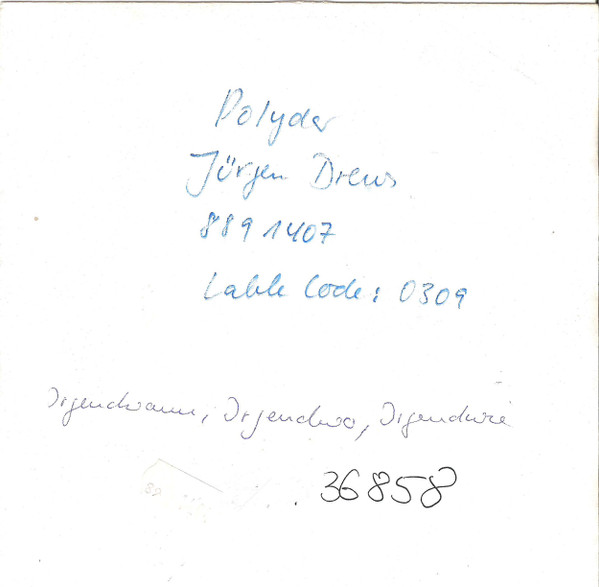 Polydor
Jürgen Drews
889 1407
Lable Code: 0309
Irgendwann, Irgendwo, Irgendwie
36858